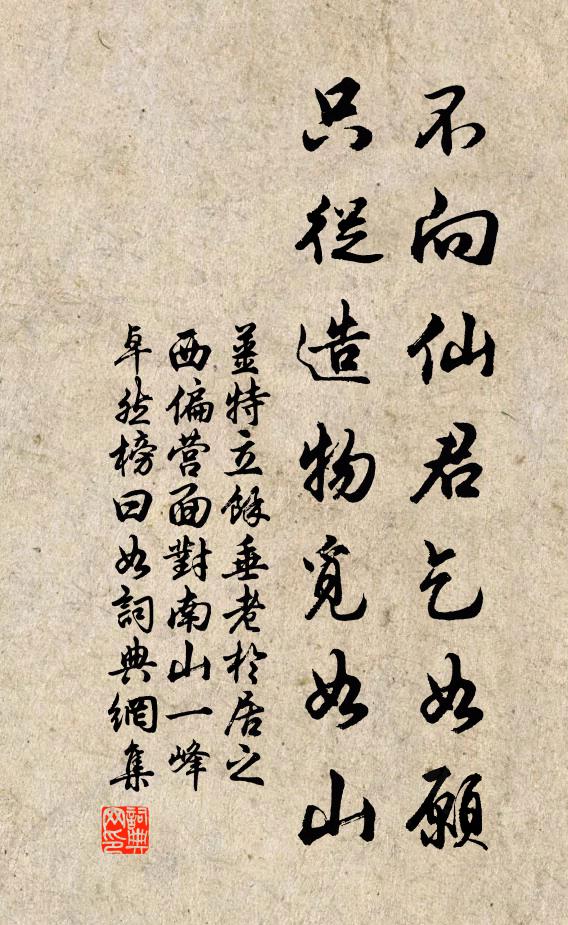 不向仙君乞如願
只從造物覓如山
姜特立餘垂老於居之
西偏营面對南山一峰
卓然榜曰如詞典網集
詞典网印